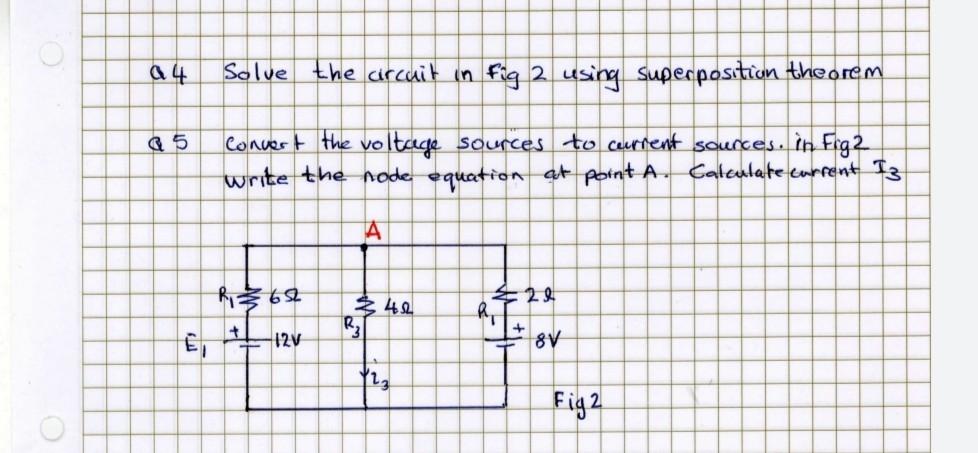 Q4 Solve the circuit in fig 2 using superposition theorem
Q5 Convert the voltage sources to current sources. in Fig2
write the node equation at point A. Calculate current I3
A
R1 6Ω
R3 4Ω
R1 2Ω
E1 + 12V
+ 8V
i3
Fig2